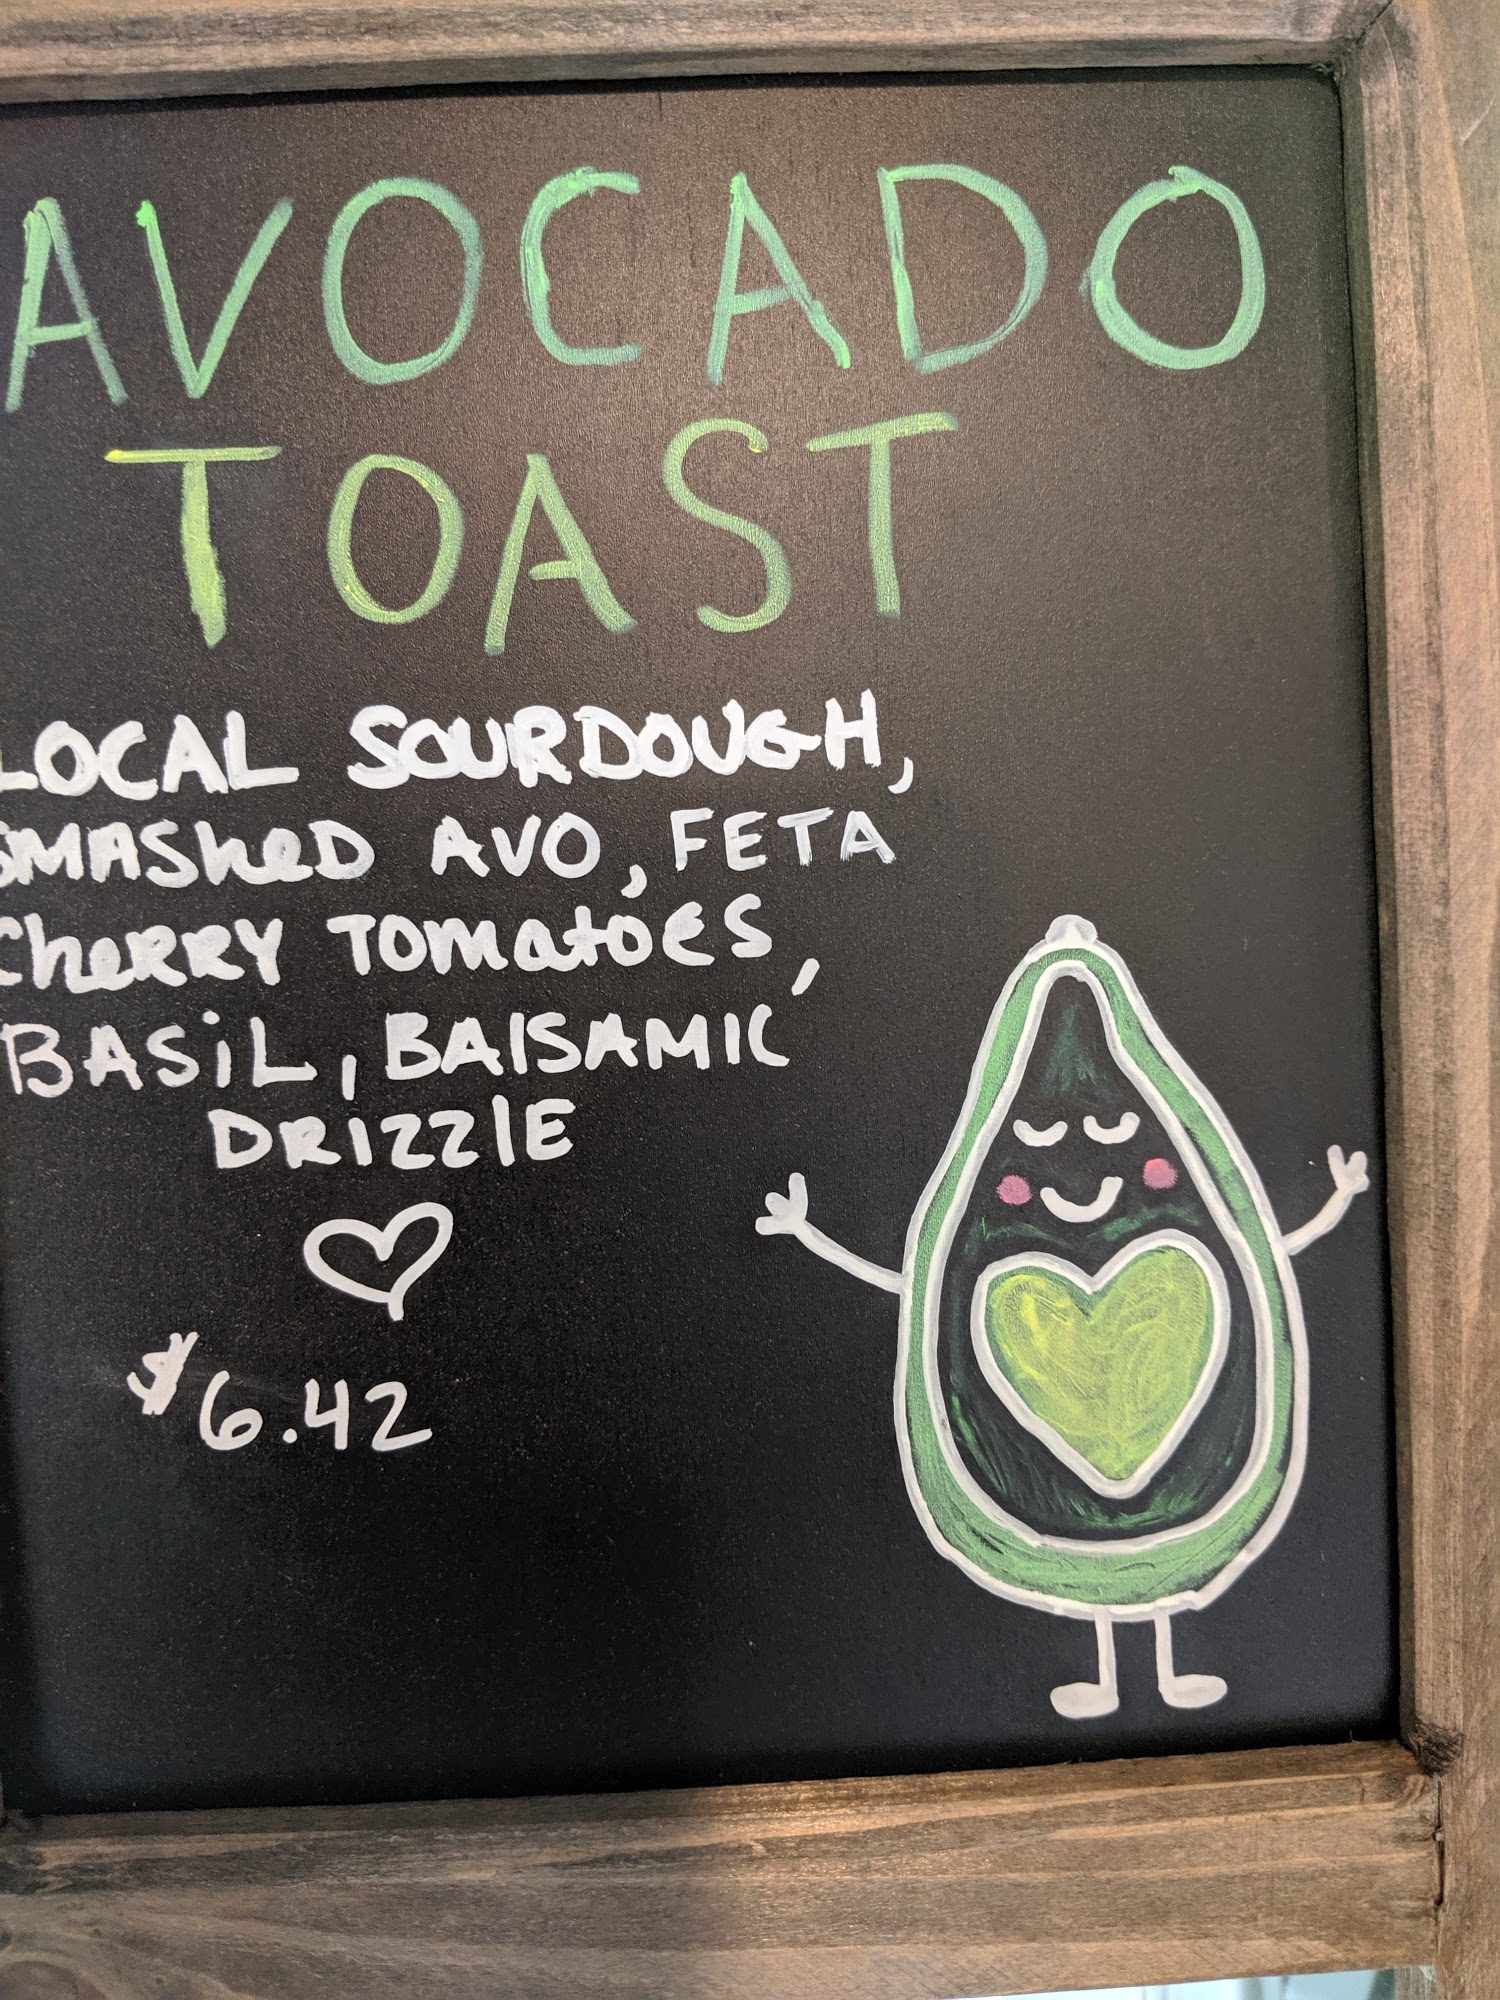 AVOCADO
TOAST
LOCAL SOURDOUGH,
SMAShED AVO, FETA
CheRRY TOmatoes,
BASiL, BALSAMIC
DRIZZLE
$6.42